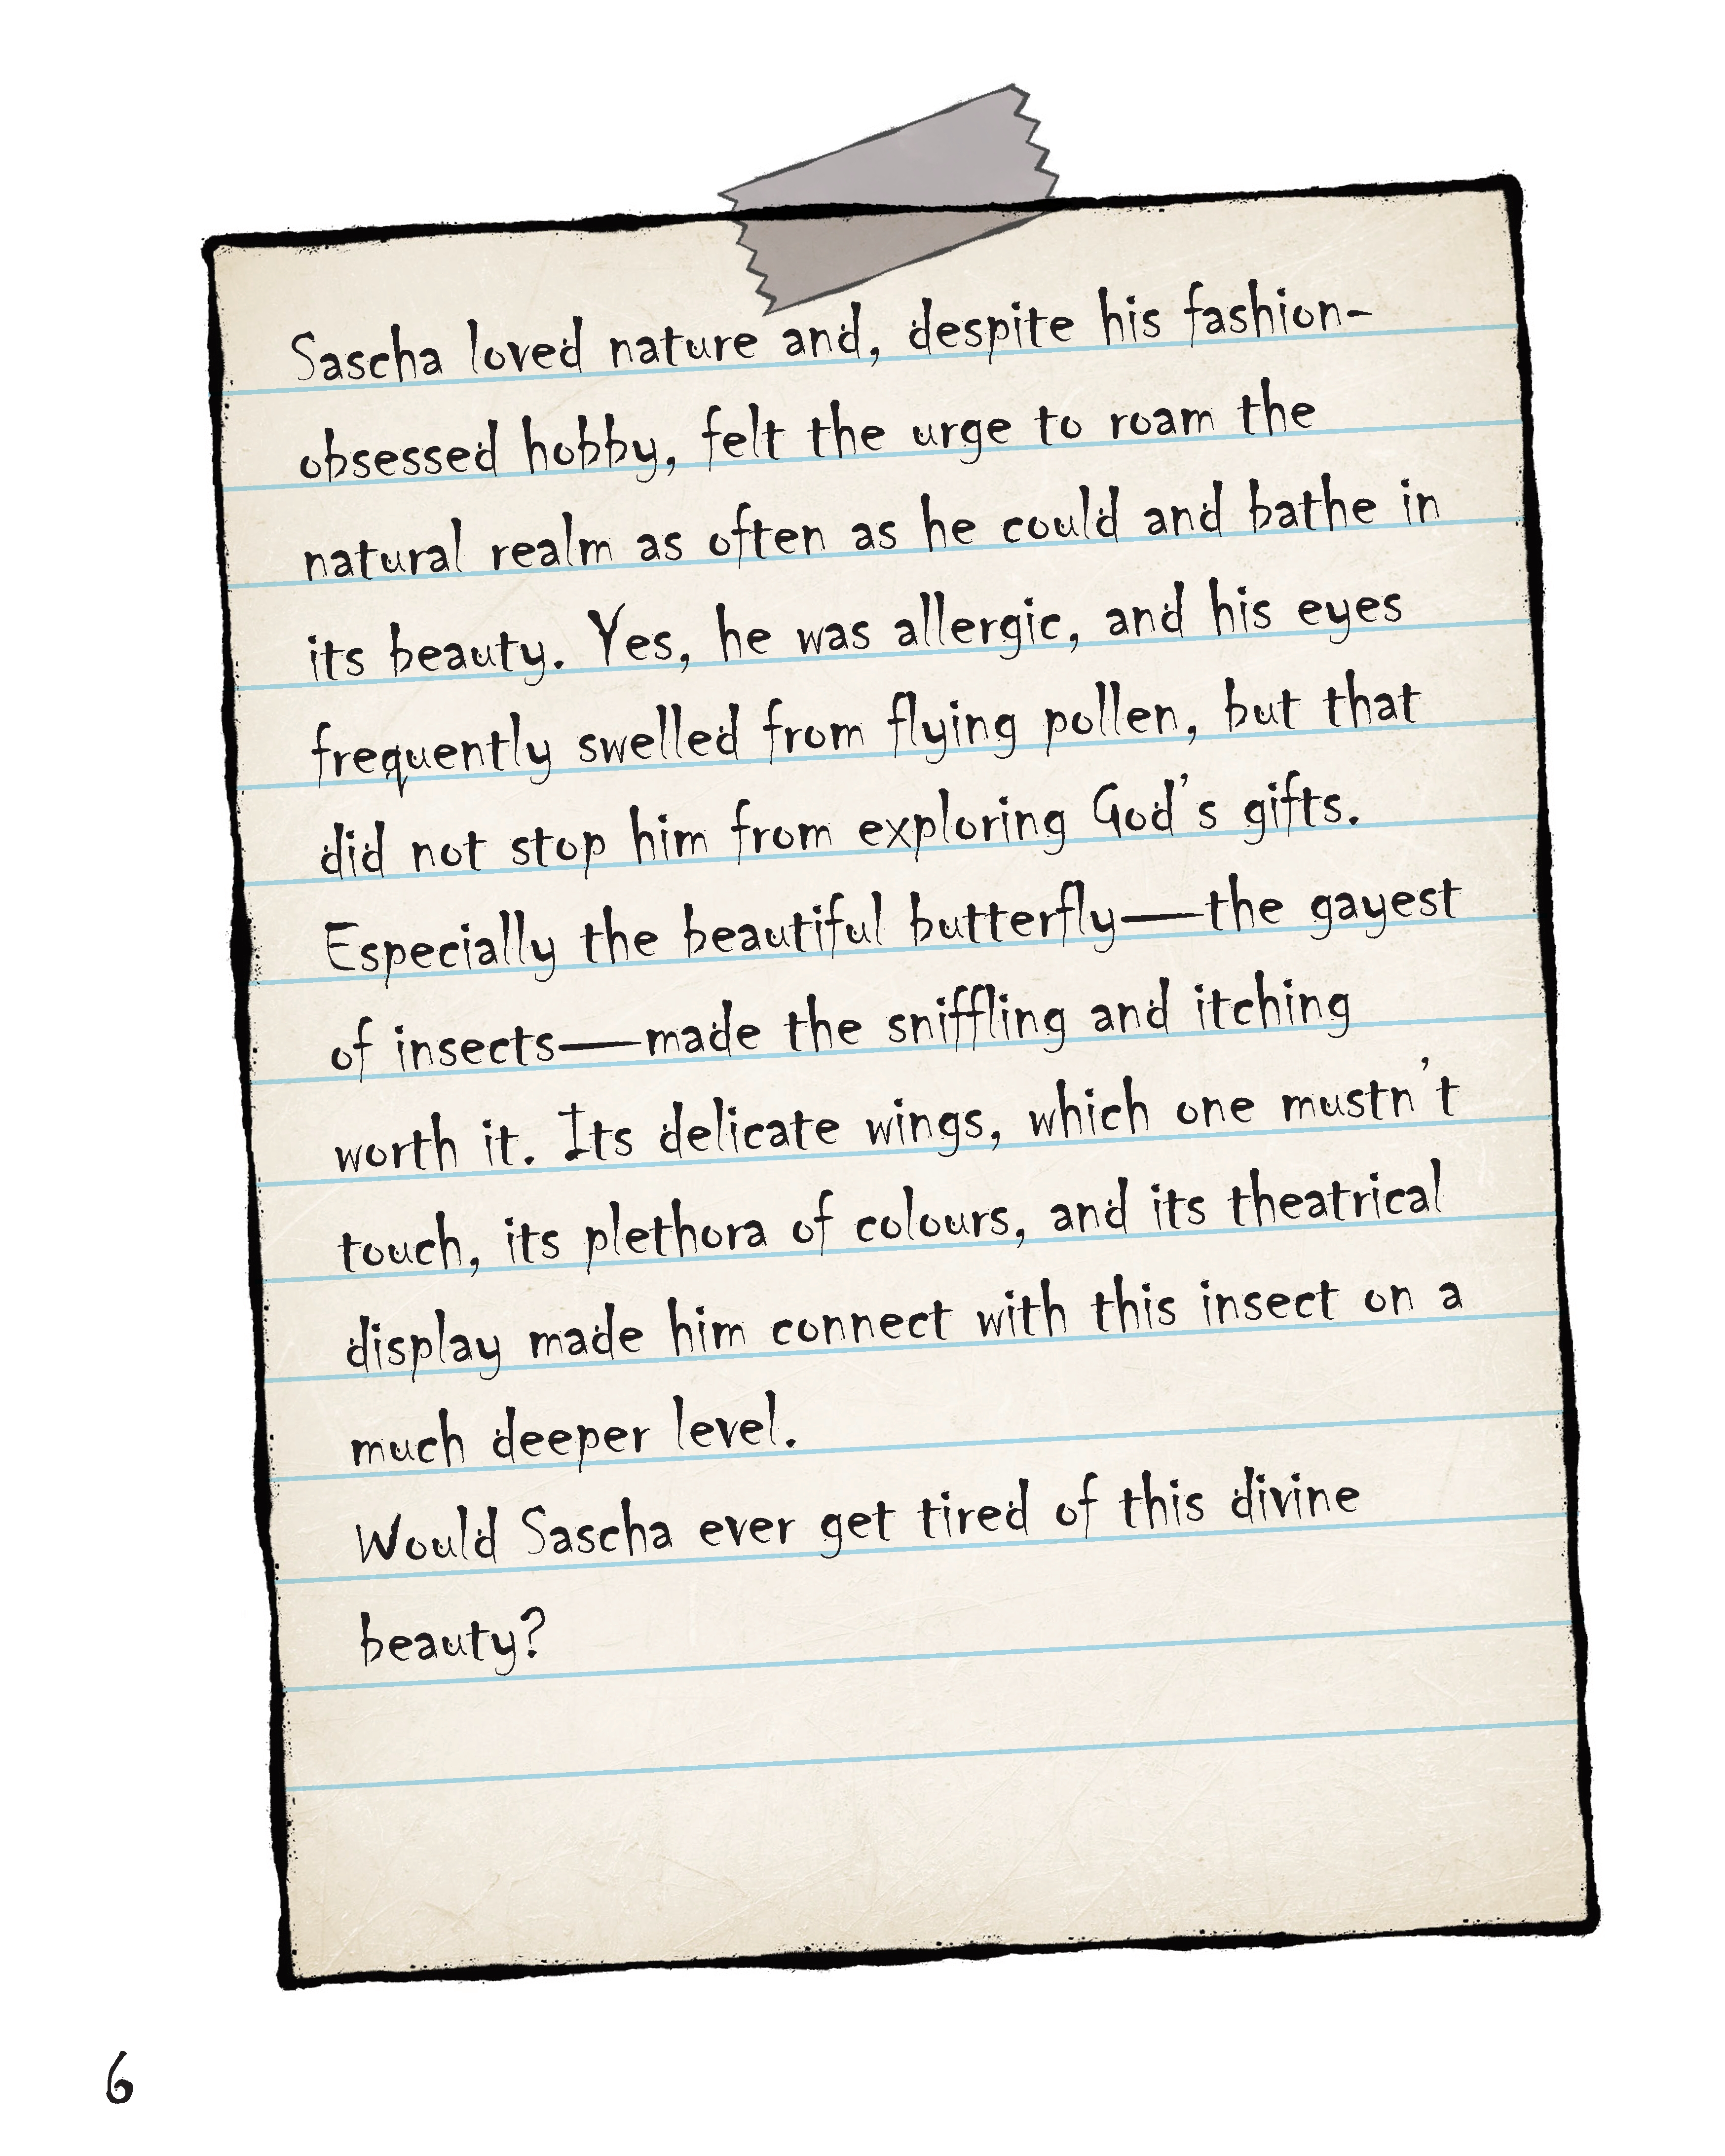 Sascha loved nature and, despite his fashion-
obsessed hobby, felt the urge to roam the
natural realm as often as he could and bathe in
its beauty. Yes, he was allergic, and his eyes
frequently swelled from flying pollen, but that
did not stop him from exploring God's gifts.
Especially the beautiful butterfly—the gayest
of insects—made the sniffling and itching
worth it. Its delicate wings, which one mustn't
touch, its plethora of colours, and its theatrical
display made him connect with this insect on a
much deeper level.
Would Sascha ever get tired of this divine
beauty?
6